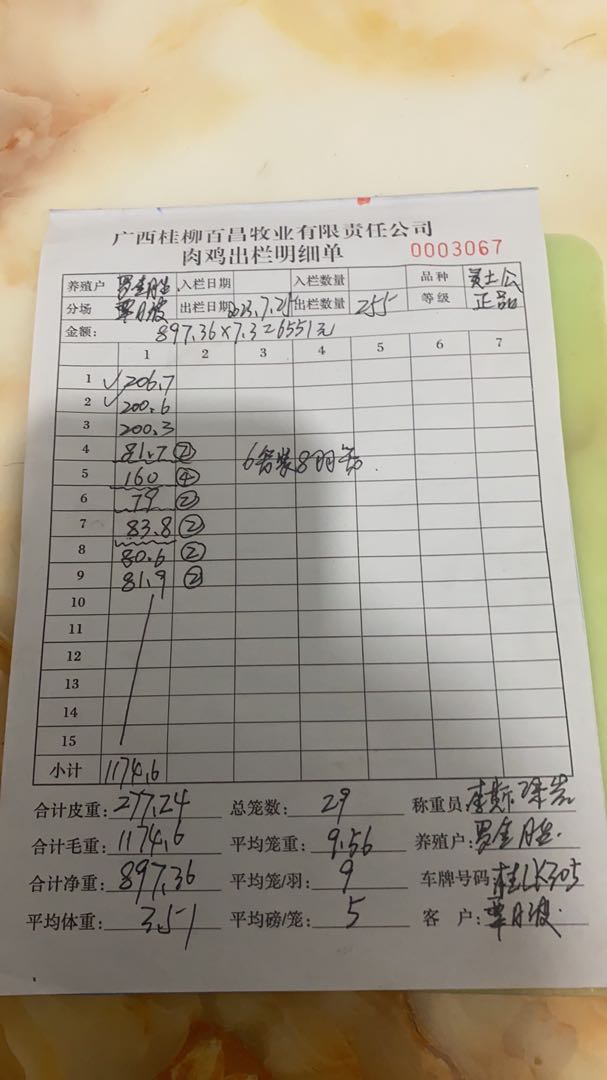 广西桂柳百昌牧业有限责任公司
肉鸡出栏明细单 0003067
养殖户 罗金胜 入栏日期 入栏数量 品种 黄土公
分场 覃月波 出栏日期 2023.7.25 出栏数量 255 等级 正品
金额： 897.36×7.3=6551元
1 2 3 4 5 6 7
1 ✓206.7
2 ✓200.6
3 200.3
4 81.7 ②
5 160 ④ 6笼装8羽
6 79 ②
7 83.8 ②
8 80.6 ②
9 81.9 ②
10
11
12
13
14
15
小计 1174.6
合计皮重：277.24 总笼数：29 称重员：
合计毛重：1174.6 平均笼重：9.56 养殖户：罗金胜
合计净重：897.36 平均笼/羽：9 车牌号码：桂LK305
平均体重：3.51 平均磅/笼：5 客户：覃月波